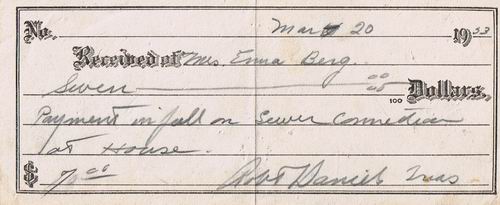 No. Mar 20 1953
Received of Mrs. Emma Berg.
Seven 00/100 Dollars.
Payment in full on Sewer Connection
at House.
$ 7.00 Robt Daniels Treas